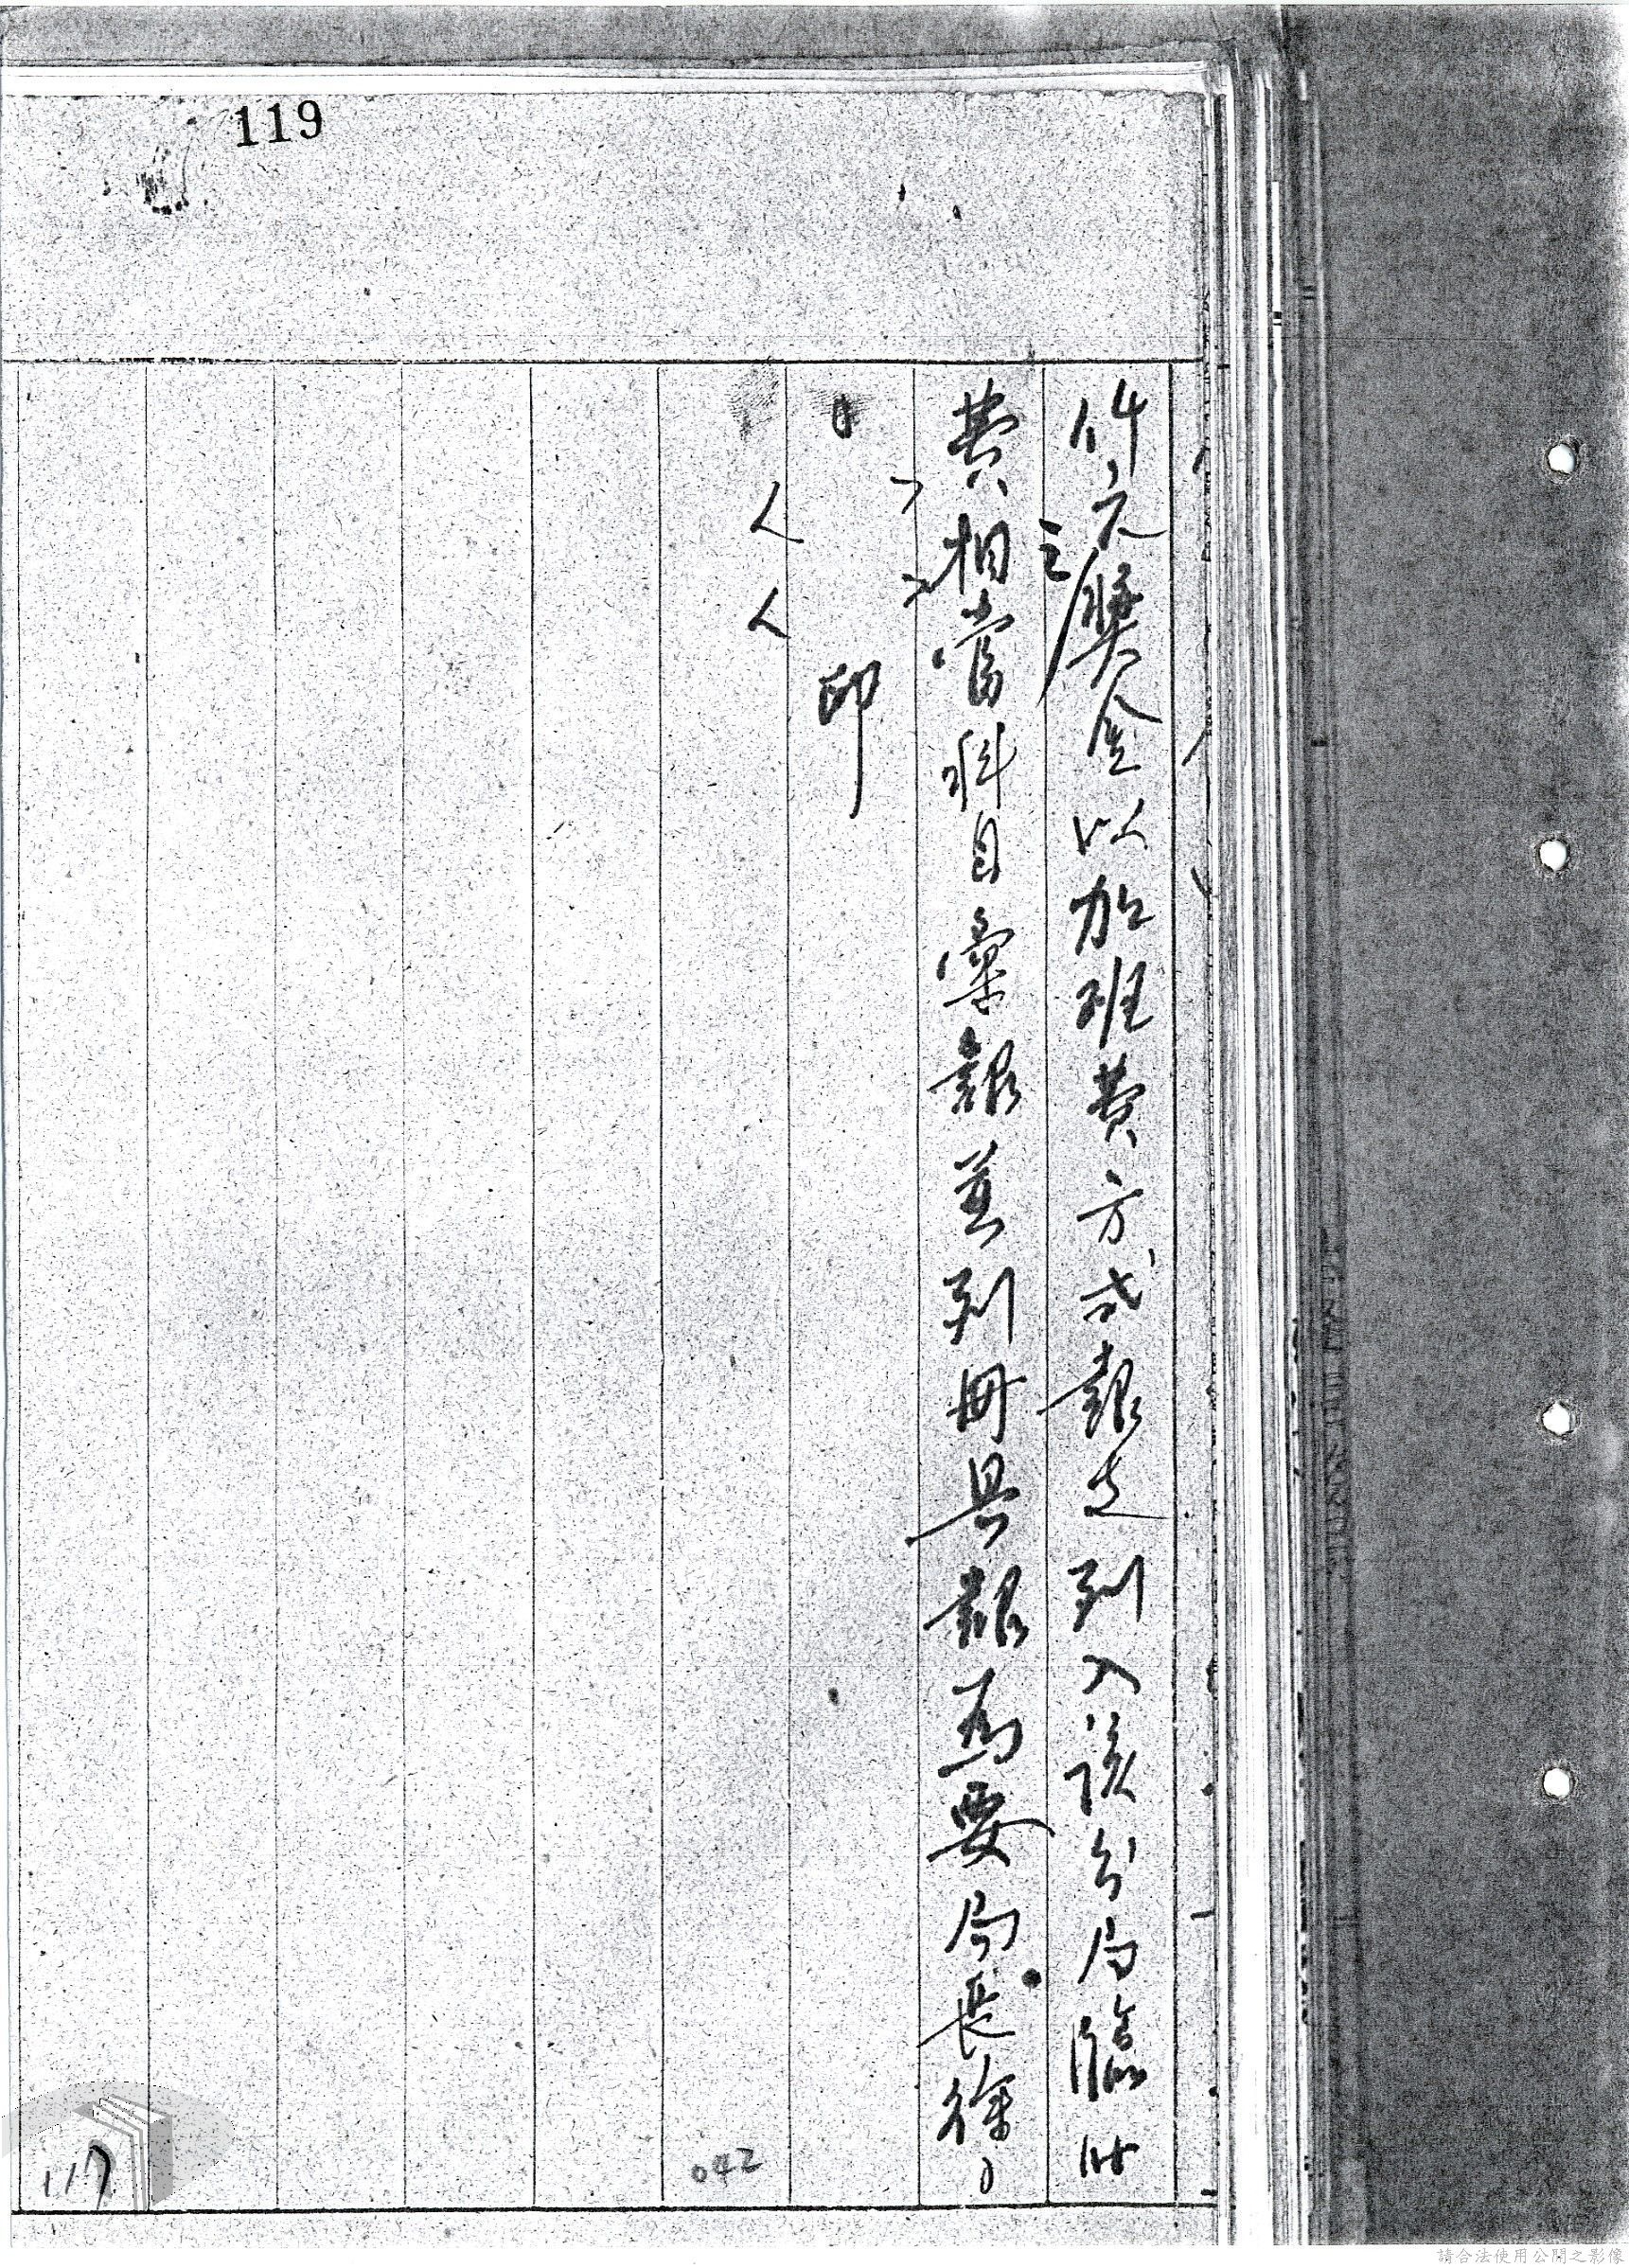 119
仟元之獎金以加班費方式報支列入該分局臨時
費相當科目彙報並列冊具報為要局長徐
印
042
117
請合法使用公開之影像